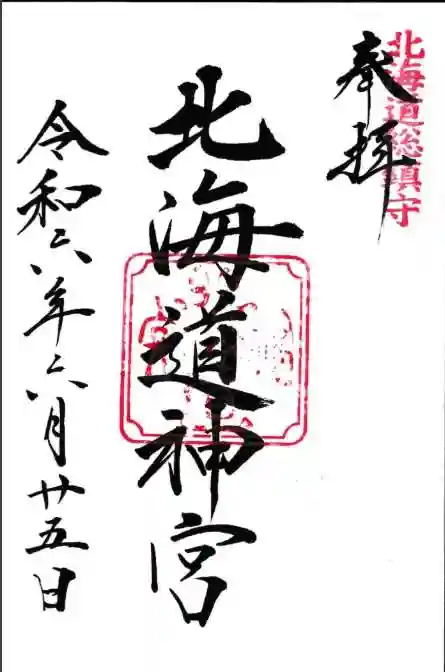 北海道総鎮守
奉拝
北海道神宮
令和六年六月廿五日